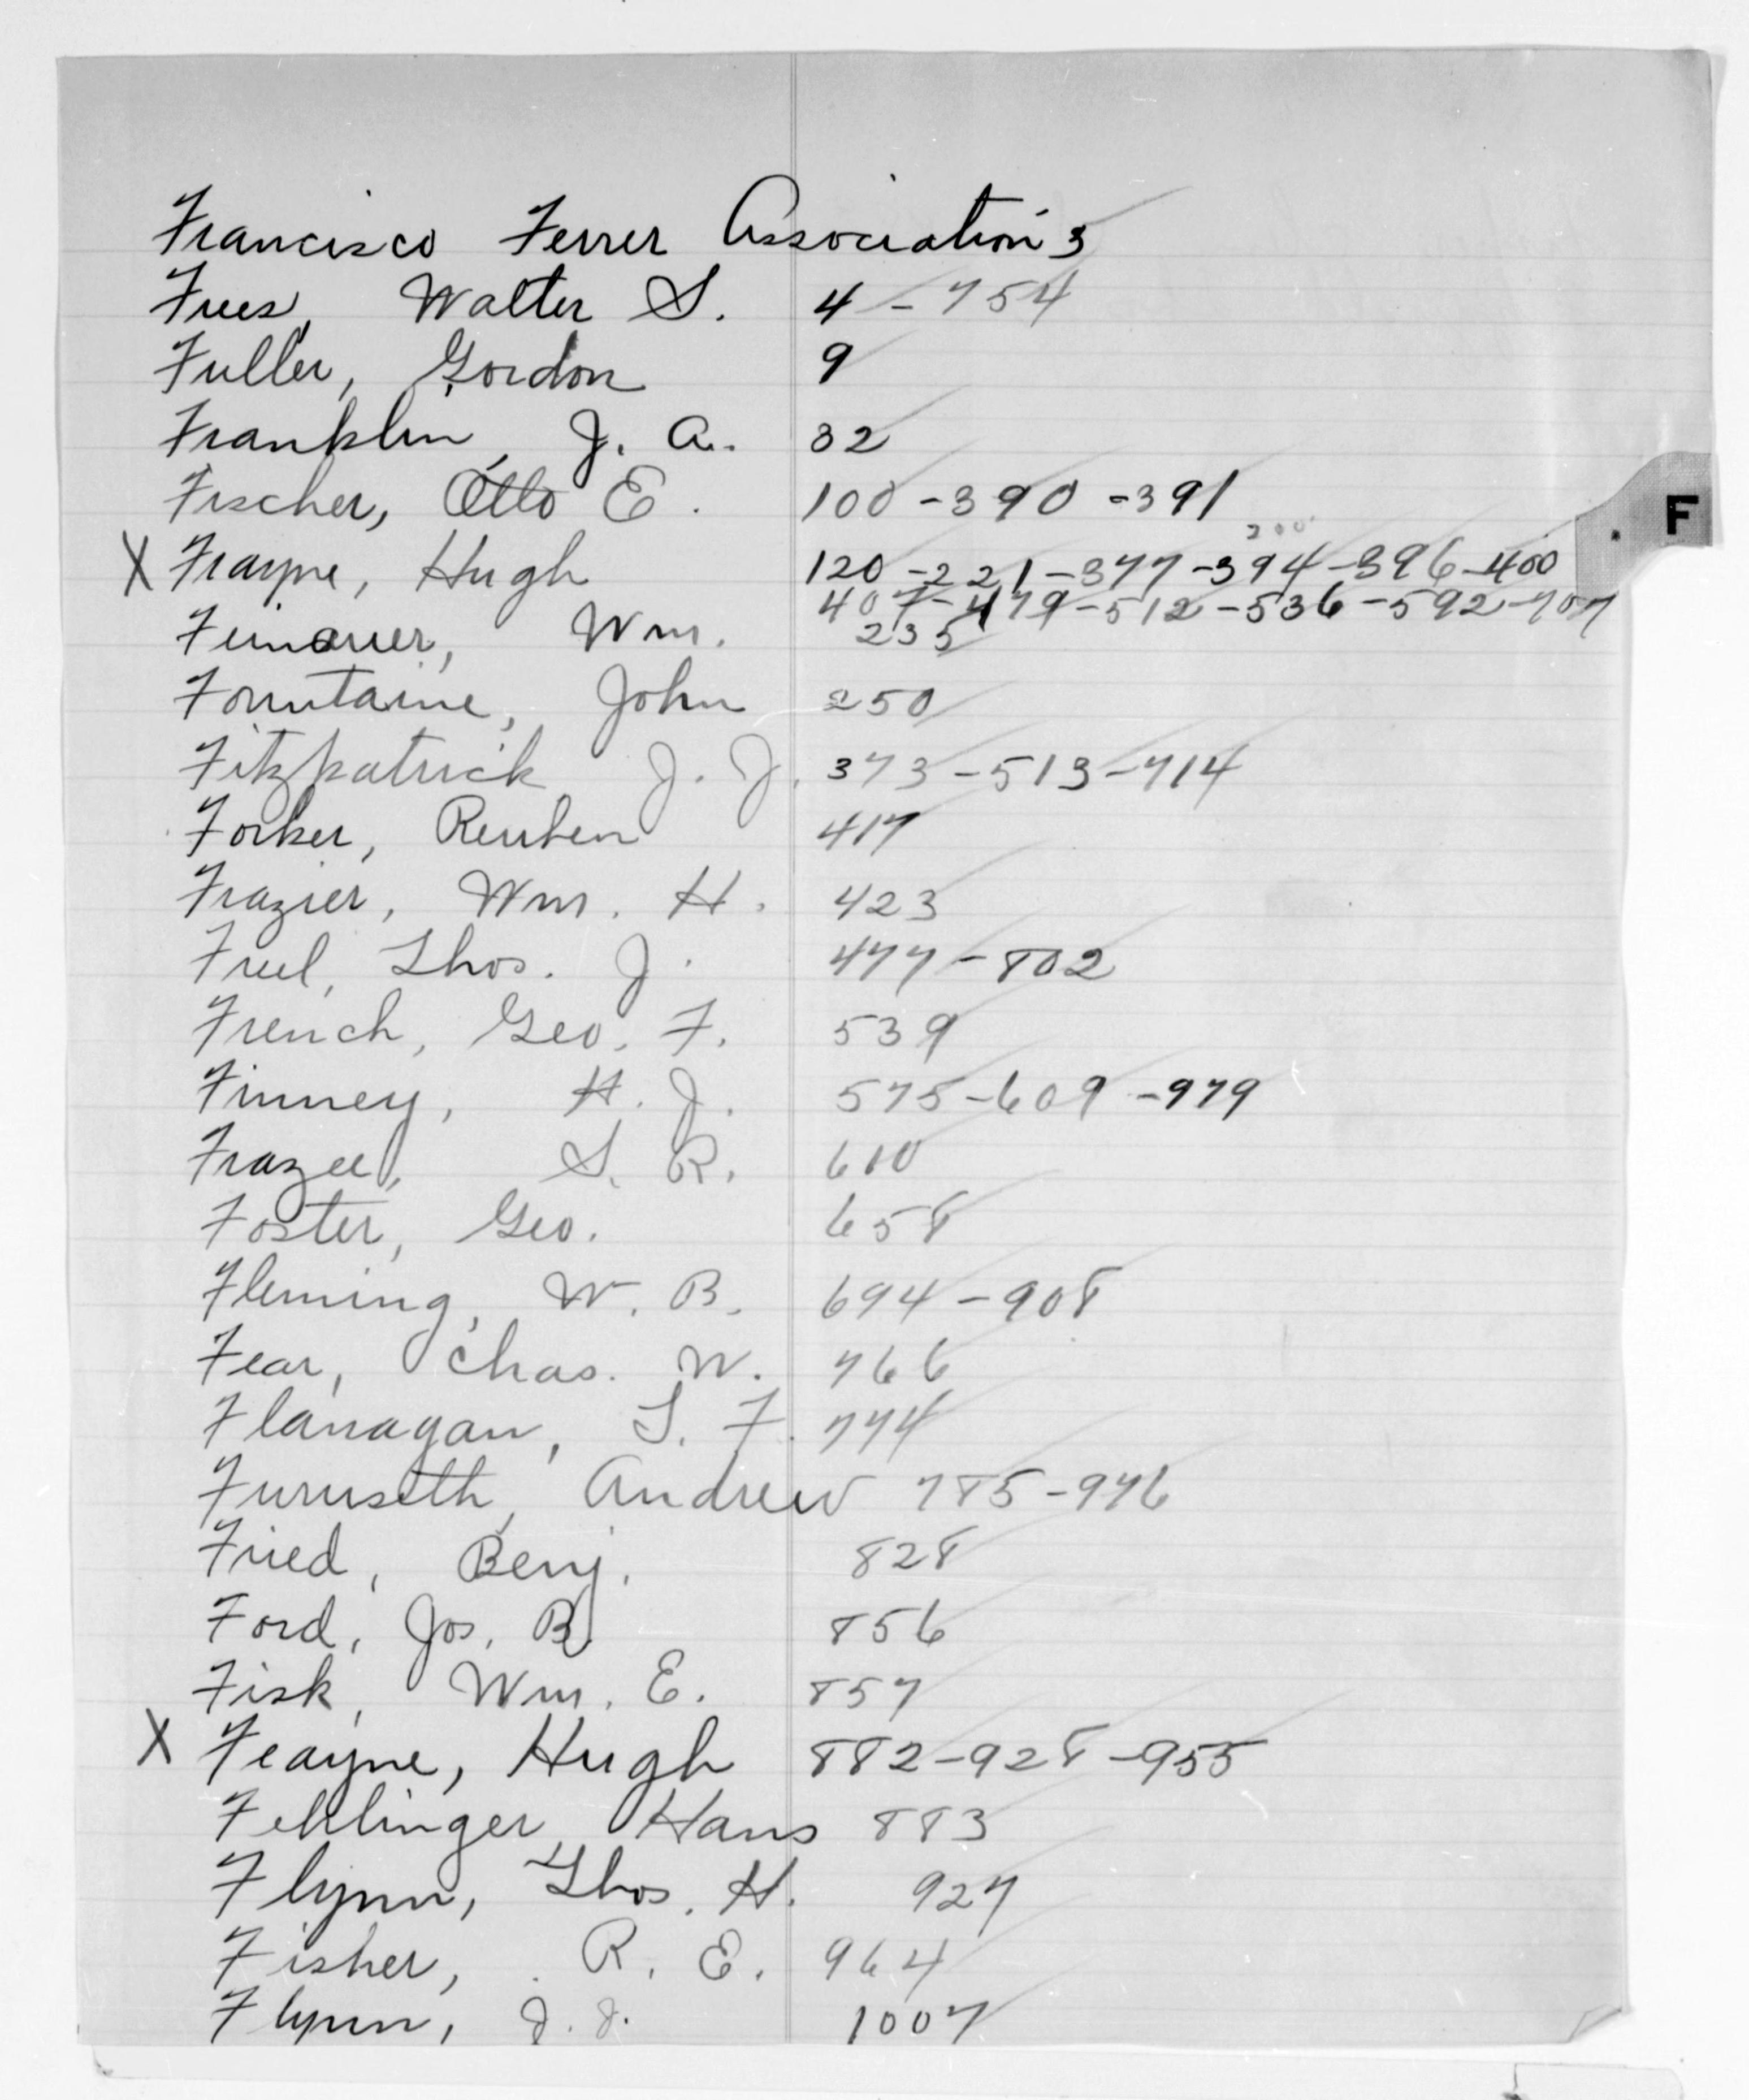 Francisco Ferrer Association 3
Frees, Walter S. 4 - 754
Fuller, Gordon 9
Franklin, J. A. 32
Fischer, Otto E. 100 - 390 - 391
F
200
X Frayne, Hugh 120 - 221 - 377 - 394 - 396 - 400
407 - 479 - 512 - 536 - 592 - 707
Wm. 235
Fountaine, John 250
Fitzpatrick J. J. 373 - 513 - 714
Forker, Reuben 417
Frazier, Wm. H. 423
Freel, Thos. J. 477 - 802
French, Geo. F. 539
Finney, H. J. 575 - 609 - 979
Frazee, S. R. 610
Foster, Geo. 658
Fleming, W. B. 694 - 908
Fear, Chas. W. 766
Flanagan, T. F. 774
Furuseth, Andrew 785 - 976
Fried, Benj. 828
Ford, Jos. B. 856
Fisk, Wm. E. 857
X Feayne, Hugh 882 - 928 - 955
Fehlinger, Hans 883
Flynn, Thos. H. 927
Fisher, R. E. 964
Flynn, J. J. 1007